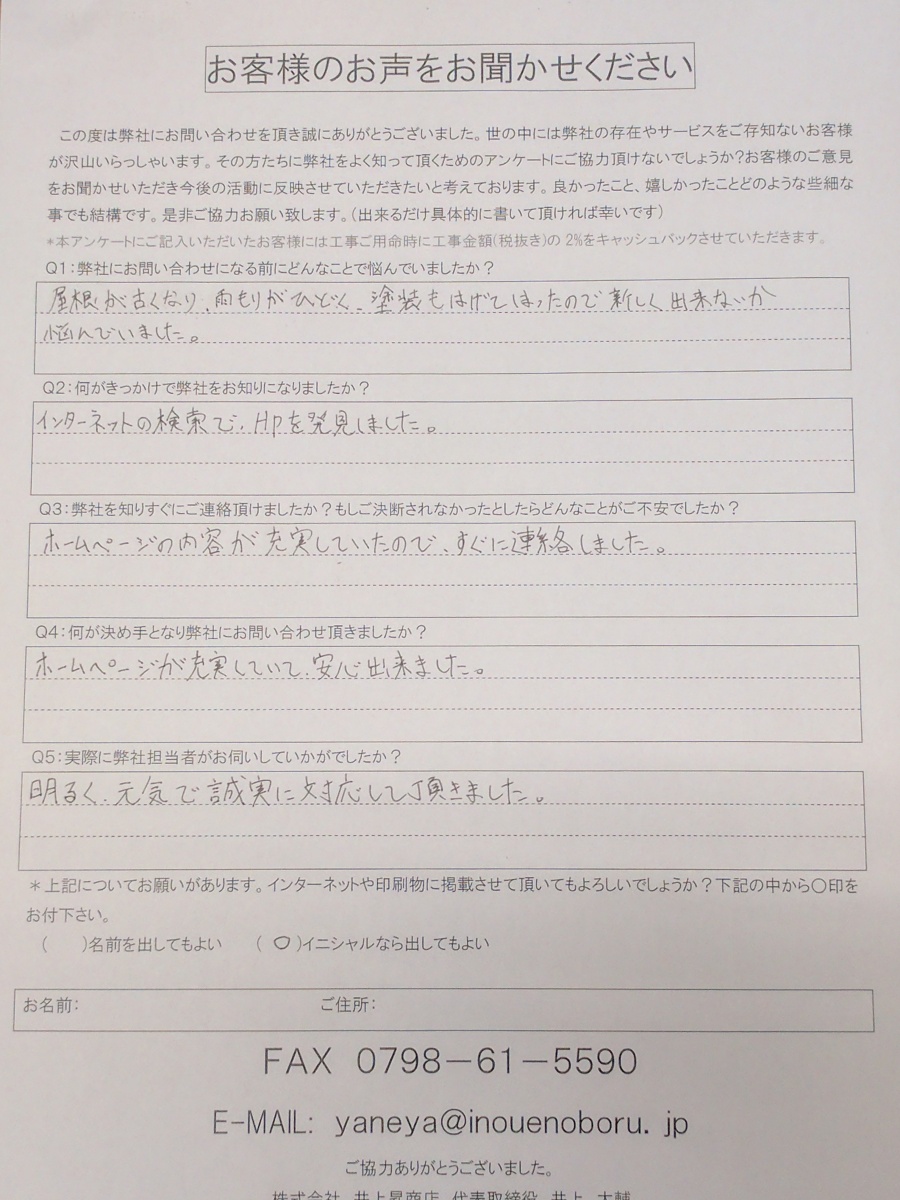 お客様のお声をお聞かせください
この度は弊社にお問い合わせを頂き誠にありがとうございました。世の中には弊社の存在やサービスをご存知ないお客様
が沢山いらっしゃいます。その方たちに弊社をよく知って頂くためのアンケートにご協力頂けないでしょうか?お客様のご意見
をお聞かせいただき今後の活動に反映させていただきたいと考えております。良かったこと、嬉しかったことどのような些細な
事でも結構です。是非ご協力お願い致します。(出来るだけ具体的に書いて頂ければ幸いです)
*本アンケートにご記入いただいたお客様には工事ご用命時に工事金額(税抜き)の 2%をキャッシュバックさせていただきます。
Q1:弊社にお問い合わせになる前にどんなことで悩んでいましたか?
屋根が古くなり、雨もりがひどく、塗装もはげてしまったので新しく出来ないか
悩んでいました。
Q2:何がきっかけで弊社をお知りになりましたか?
インターネットの検索で、HPを発見しました。
Q3:弊社を知りすぐにご連絡頂けましたか?もしご決断されなかったとしたらどんなことがご不安でしたか?
ホームページの内容が充実していたので、すぐに連絡しました。
Q4:何が決め手となり弊社にお問い合わせ頂きましたか?
ホームページが充実していて、安心出来ました。
Q5:実際に弊社担当者がお伺いしていかがでしたか?
明るく、元気で誠実に対応して頂きました。
*上記についてお願いがあります。インターネットや印刷物に掲載させて頂いてもよろしいでしょうか?下記の中から〇印を
お付下さい。
(　　)名前を出してもよい　　(〇)イニシャルなら出してもよい
お名前:　　ご住所:
FAX 0798-61-5590
E-MAIL: yaneya@inouenoboru.jp
ご協力ありがとうございました。
株式会社 井上昇商店 代表取締役 井上 大輔